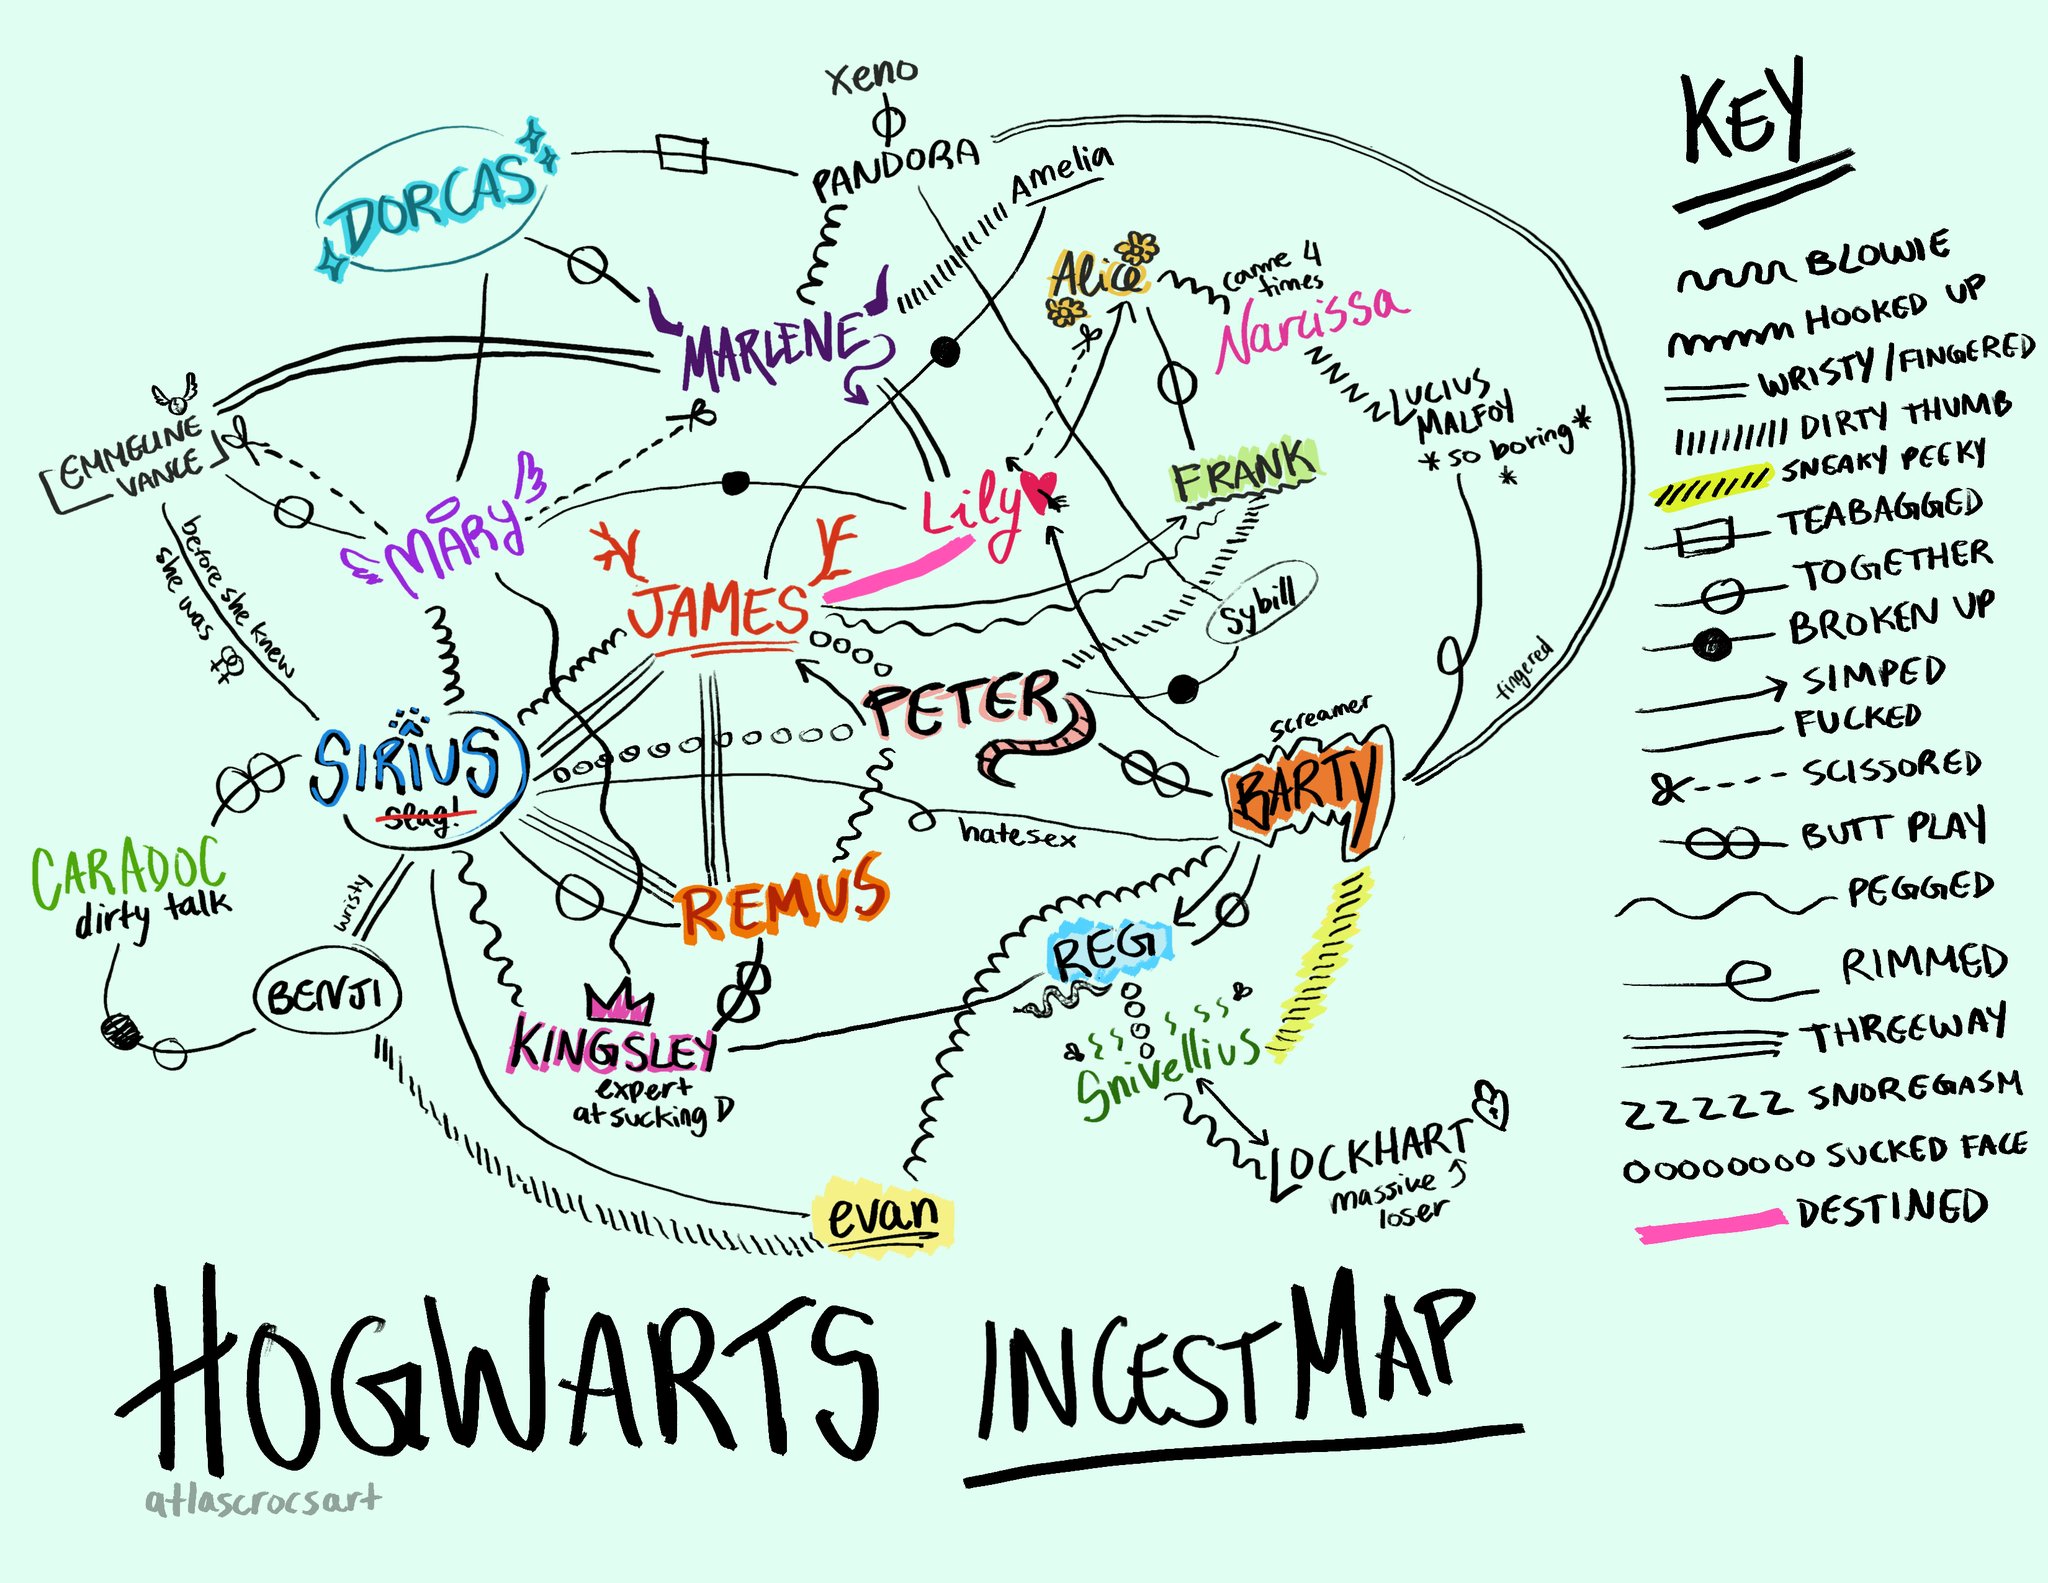 Xeno
DORCAS
PANDORA
Amelia
Alice
came 4
times
Narcissa
MARLENE
LUCIUS
MALFOY
*so boring*
*
EMMELINE
VANCE
FRANK
MARY
Lily
before she knew
she was
JAMES
Sybill
PETER
fingered
screamer
SIRIUS
slag!
BARTY
hatesex
CARADOC
dirty talk
REMUS
wristy
REG
BENJI
KINGSLEY
expert
at sucking D
Snivellius
LOCKHART
massive
loser
evan
KEY
BLOWIE
HOOKED UP
WRISTY/FINGERED
DIRTY THUMB
SNEAKY PEEKY
TEABAGGED
TOGETHER
BROKEN UP
SIMPED
FUCKED
SCISSORED
BUTT PLAY
PEGGED
RIMMED
THREEWAY
ZZZZZ SNOREGASM
SUCKED FACE
DESTINED
HOGWARTS INCEST MAP
atlascrocsart